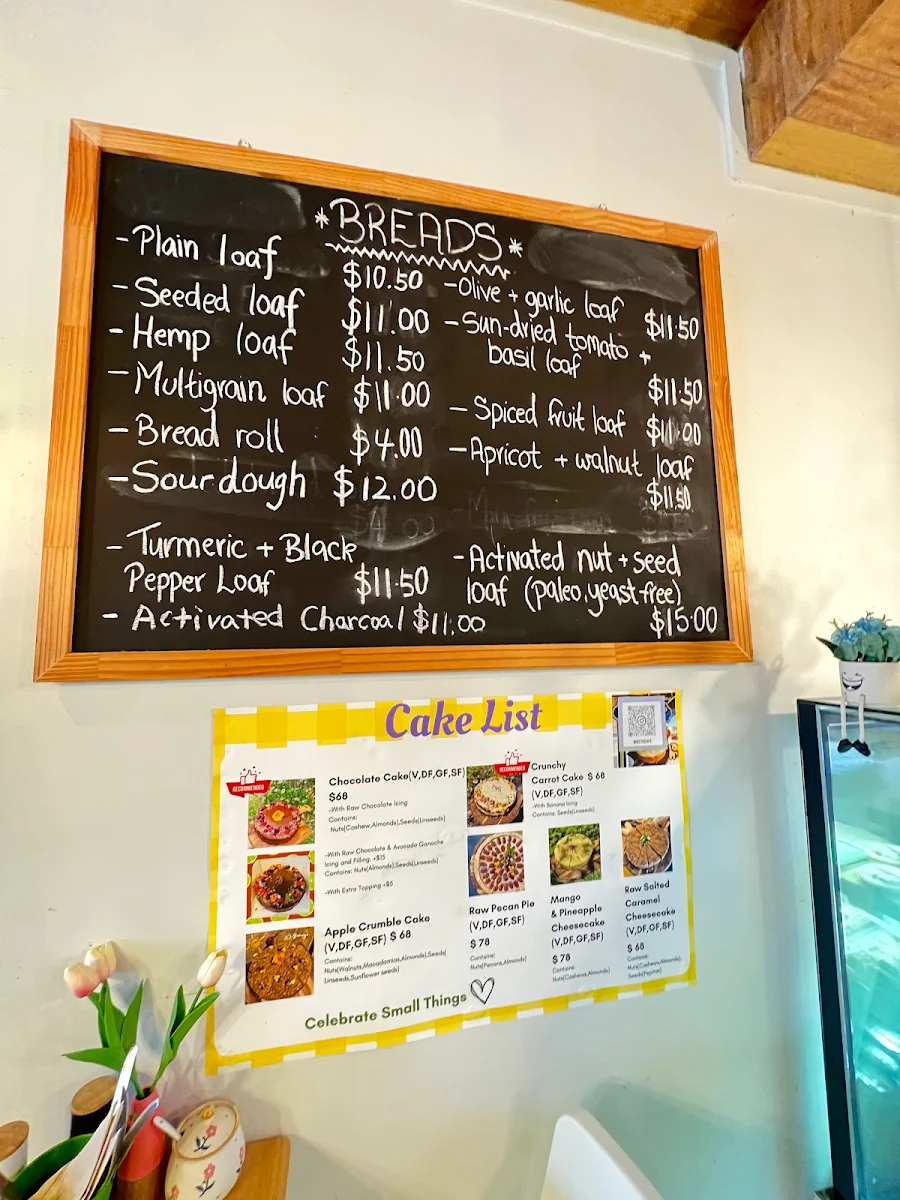 *BREADS*
-Plain loaf $10.50
-Seeded loaf $11.00
-Hemp loaf $11.50
-Multigrain loaf $11.00
-Bread roll $4.00
-Sourdough $12.00
-Turmeric + Black
Pepper Loaf $11.50
-Activated Charcoal $11.00
-Olive + garlic loaf $11.50
-Sun-dried tomato +
basil loaf
$11.50
-Spiced fruit loaf $11.00
-Apricot + walnut loaf
$11.50
-Activated nut + seed
loaf (paleo, yeast-free)
$15.00
Cake List
RECOMMENDED
Chocolate Cake(V,DF,GF,SF)
$68
-With Raw Chocolate Icing
Contains:
Nuts(Cashew,Almonds),Seeds(Linseeds)
-With Raw Chocolate & Avocado Ganache
Icing and Filling. +$15
Contains: Nuts(Almonds),Seeds(Linseeds)
-With Extra Topping +$5
Apple Crumble Cake
(V,DF,GF,SF) $ 68
Contains:
Nuts(Walnuts,Macadamias,Almonds),Seeds(
Linseeds,Sunflower seeds)
RECOMMENDED
Crunchy
Carrot Cake $ 68
(V,DF,GF,SF)
-With Banana Icing
Contains: Seeds(Linseeds)
Raw Pecan Pie
(V,DF,GF,SF)
$ 78
Contains:
Nuts(Pecans,Almonds)
Mango
& Pineapple
Cheesecake
(V,DF,GF,SF)
$ 78
Contains:
Nuts(Cashews,Almonds)
Raw Salted
Caramel
Cheesecake
(V,DF,GF,SF)
$ 68
Contains:
Nuts(Cashews,Almonds),
Seeds(Pepitas)
Celebrate Small Things